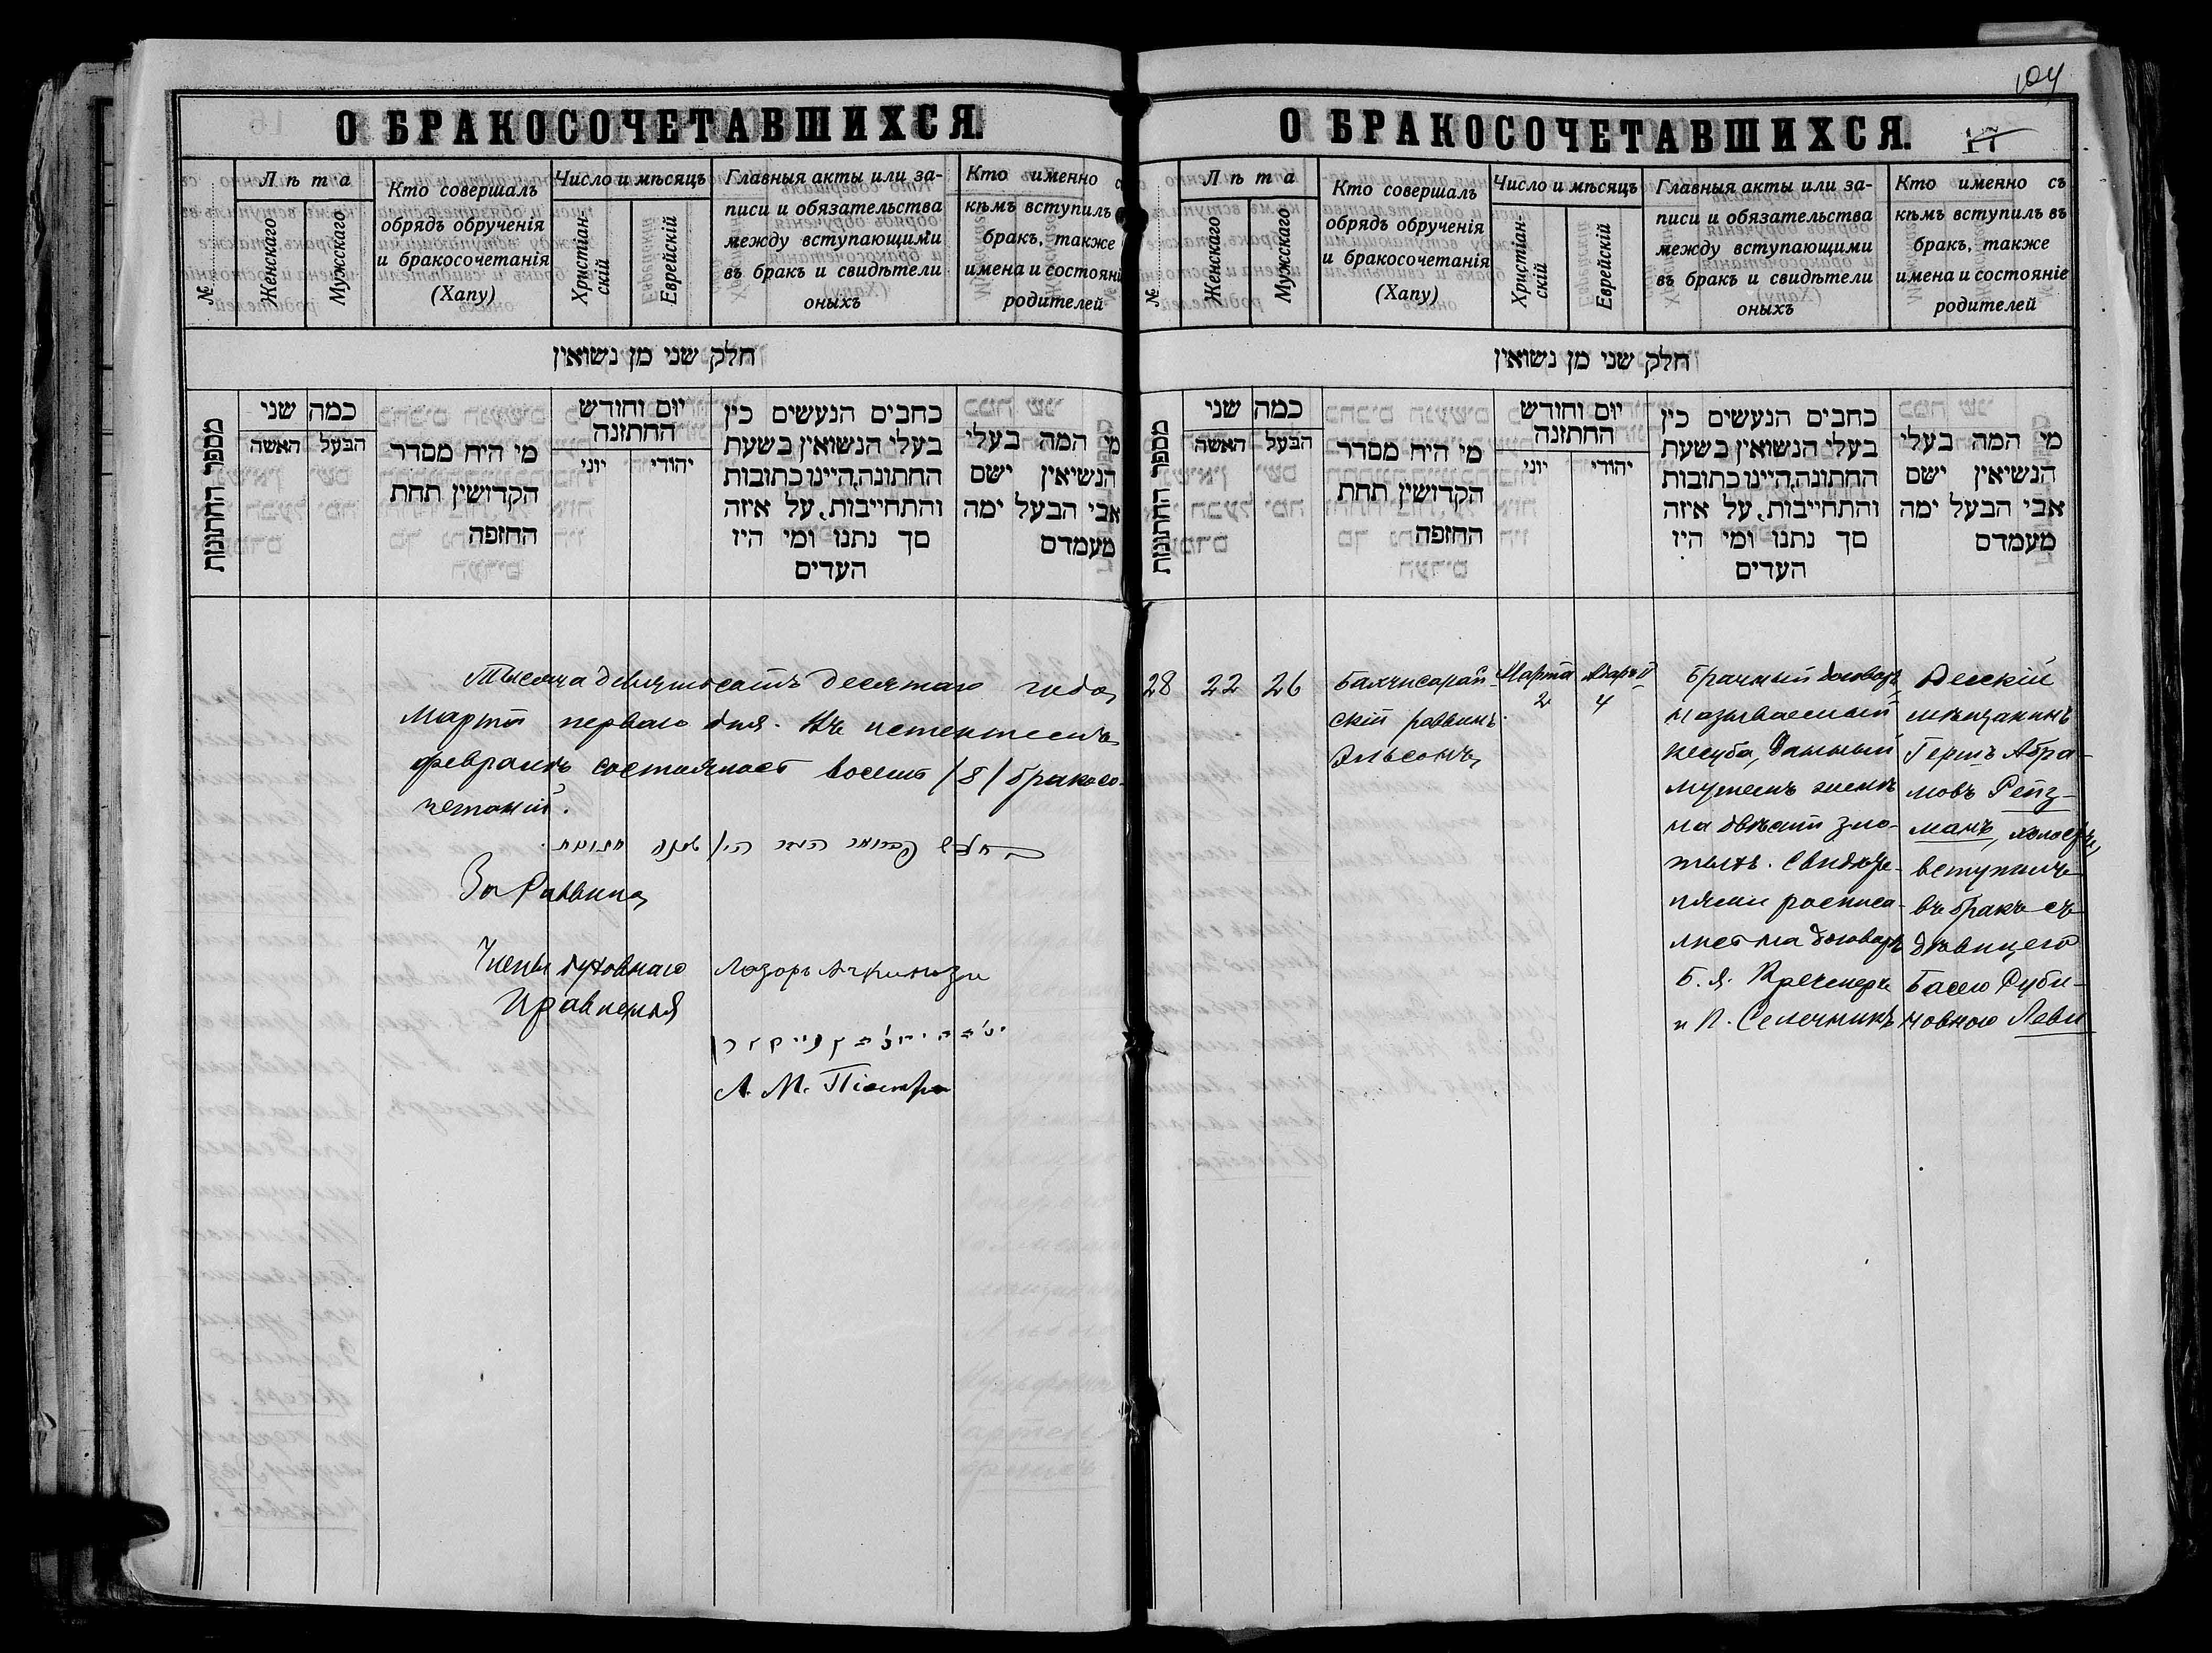 О БРАКОСОЧЕТАВШИХСЯ.
№
Лѣта
Женскаго
Мужскаго
Кто совершалъ
обрядъ обрученія
и бракосочетанія
(Хапу)
Число и мѣсяцъ
Христіан-
скій
Еврейскій
Главныя акты или за-
писи и обязательства
между вступающими
въ бракъ и свидѣтели
оныхъ
Кто именно с
кѣмъ вступилъ
бракъ, также
имена и состояні
родителей
חלק שני מן נשואין
מספר החתונות
כמה שני
הבעל
האשה
מי היח מסדר
הקדושין תחת
החופה
יום וחודש
החתונה
יהודי
יוני
כתבים הנעשים כין
בעלי הנשואין בשעת
החתונה, היינו כתובות
והתחייבות, על איזה
סך נתנו ומי היו
העדים
מי המה בעלי
הנשיאין ישם
אבי הבעל ימה
מעמדם
Тысяча девятьсотъ десятаго года
Марта перваго дня. Въ истекшемъ
февралѣ состоялост восемь /8/ бракосо-
четаній.
За Раввина
Члены духовнаго
Правленія
Лазарь Ашкинази
О БРАКОСОЧЕТАВШИХСЯ.
104
17
№
Лѣта
Женскаго
Мужскаго
Кто совершалъ
обрядъ обрученія
и бракосочетанія
(Хапу)
Число и мѣсяцъ
Христіан-
скій
Еврейскій
Главныя акты или за-
писи и обязательства
между вступающими
въ бракъ и свидѣтели
оныхъ
Кто именно съ
кѣмъ вступилъ въ
бракъ, также
имена и состояніе
родителей
חלק שני מן נשואין
מספר החתונות
כמה שני
הבעל
האשה
מי היח מסדר
הקדושין תחת
החופה
יום וחודש
החתונה
יהודי
יוני
כתבים הנעשים כין
בעלי הנשואין בשעת
החתונה, היינו כתובות
והתחייבות, על איזה
סך נתנו ומי היו
העדים
מי המה בעלי
הנשיאין ישם
אבי הבעל ימה
מעמדם
28
22
26
Бахчисарай-
скій раввинъ
Эльсонъ
Марта
2
Адаръ II
4
Брачный договоръ,
называемый
кесуба, данный
мужемъ женѣ
на двѣсти зло-
тыхъ. Свидѣте-
лями росписа-
лист на договорѣ
Б. Я. Кречмеръ
и П. Селечникъ
мѣщанинъ
Гершъ Абра-
мовъ Рейз-
манъ, холостъ,
вступилъ
въ бракъ съ
дѣвицею
Басею Руби-
новною Леви